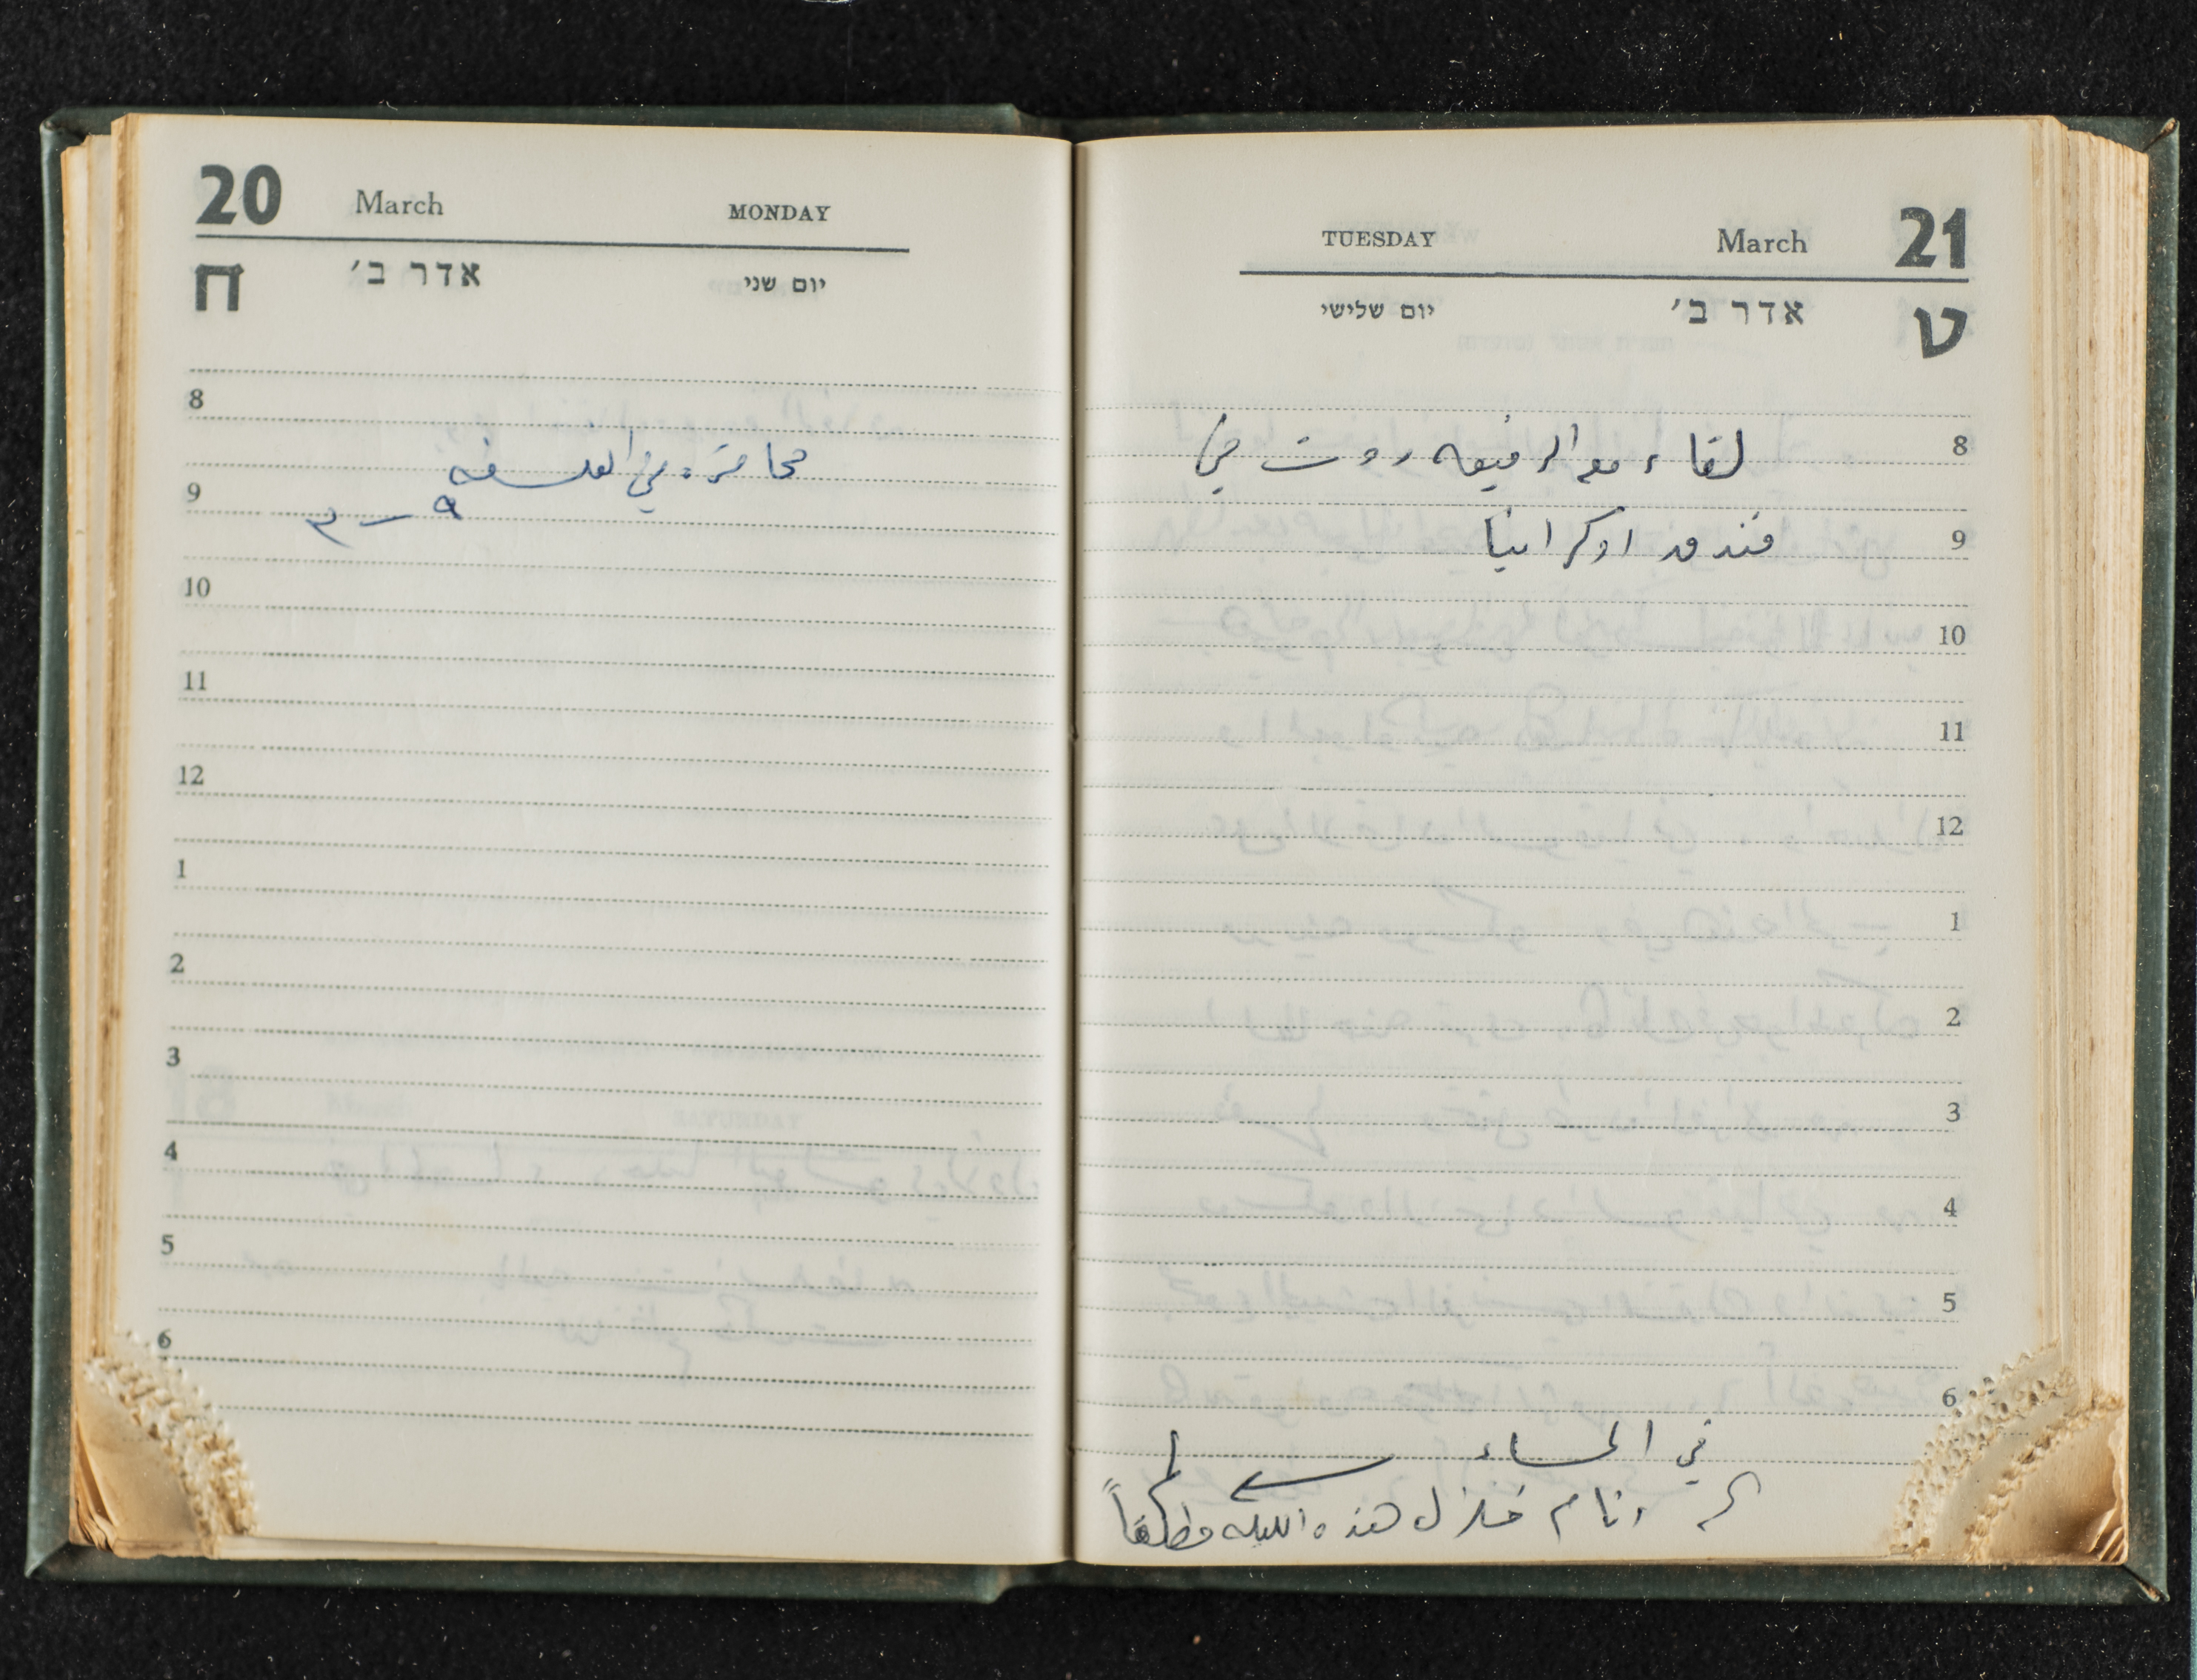 20 March MONDAY
ח אדר ב׳ יום שני
8
محاضره في الفلسفه
9
٩ — ٣
10
11
12
1
2
3
4
5
6
TUESDAY March 21
יום שלישי אדר ב׳ ט
8
لقاء مع الرفيقه روت في
9
فندق اوكرانيا
10
11
12
1
2
3
4
5
6
في المساء
لم انام خلال هذه الليله مطلقاً